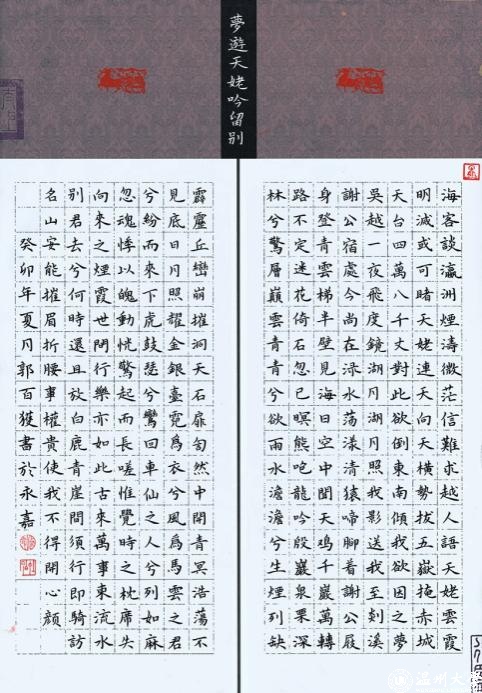 夢遊天姥吟留別
海客談瀛洲煙濤微茫信難求越人語天姥雲霞
明滅或可睹天姥連天向天橫勢拔五嶽掩赤城
天台四萬八千丈對此欲倒東南傾我欲因之夢
吳越一夜飛度鏡湖月湖月照我影送我至剡溪
謝公宿處今尚在淥水蕩漾清猿啼腳著謝公屐
身登青雲梯半壁見海日空中聞天鸡千巖萬轉
路不定迷花倚石忽已暝熊咆龍吟殷巖泉栗深
林兮驚層巔雲青青兮欲雨水澹澹兮生煙列缺
霹靂丘巒崩摧洞天石扉訇然中開青冥浩蕩不
見底日月照耀金銀臺霓爲衣兮風爲馬雲之君
兮紛而來下虎鼓瑟兮鸞回車仙之人兮列如麻
忽魂悸以魄動恍驚起而長嗟惟覺時之枕席失
向來之煙霞世間行樂亦如此古來萬事東流水
別君去兮何時還且放白鹿青崖間須行即騎訪
名山安能摧眉折腰事權貴使我不得開心顏
癸卯年夏月郭百獲書於永嘉
温州大